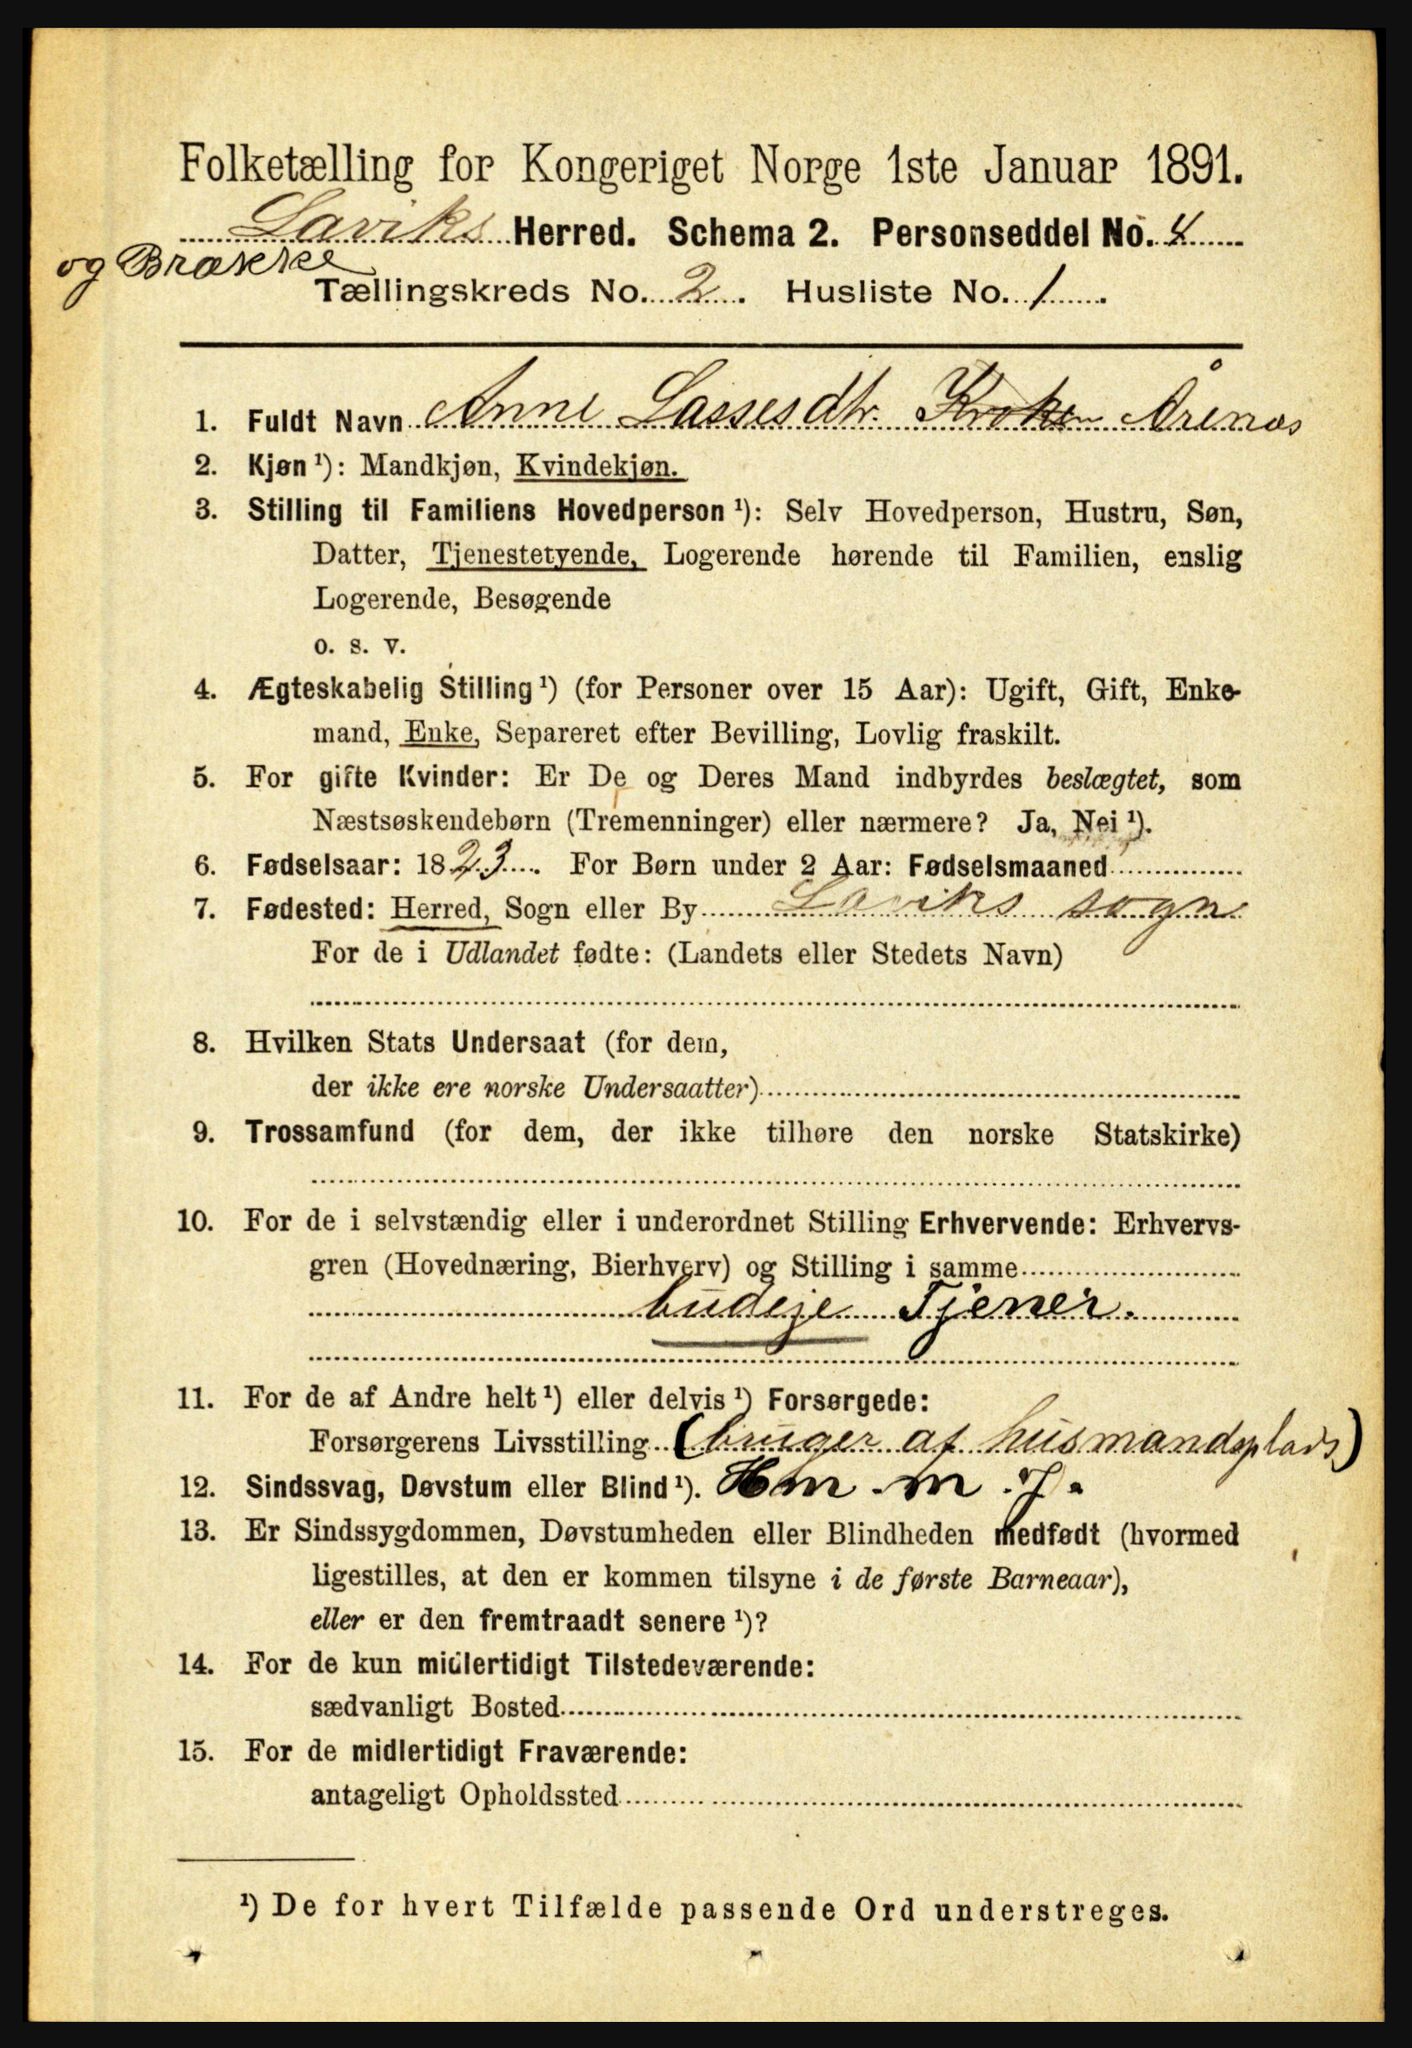 Folketælling for Kongeriget Norge 1ste Januar 1891.
Laviks Herred. Schema 2. Personseddel No. 4
og Brække
Tællingskreds No. 2. Husliste No. 1.
1. Fuldt Navn Anne Lassesdtr. Kroken Årenæs
2. Kjøn ¹): Mandkjøn, Kvindekjøn.
3. Stilling til Familiens Hovedperson ¹): Selv Hovedperson, Hustru, Søn,
Datter, Tjenestetyende, Logerende hørende til Familien, enslig
Logerende, Besøgende
o. s. v.
4. Ægteskabelig Stilling ¹) (for Personer over 15 Aar): Ugift, Gift, Enke-
mand, Enke, Separeret efter Bevilling, Lovlig fraskilt.
5. For gifte Kvinder: Er De og Deres Mand indbyrdes beslægtet, som
Næstsøskendebørn (Tremenninger) eller nærmere? Ja, Nei ¹).
6. Fødselsaar: 1823. For Børn under 2 Aar: Fødselsmaaned
7. Fødested: Herred, Sogn eller By Laviks sogn
For de i Udlandet fødte: (Landets eller Stedets Navn)
8. Hvilken Stats Undersaat (for dem,
der ikke ere norske Undersaatter)
9. Trossamfund (for dem, der ikke tilhøre den norske Statskirke)
10. For de i selvstændig eller i underordnet Stilling Erhvervende: Erhvervs-
gren (Hovednæring, Bierhverv) og Stilling i samme
budeje Tjener.
11. For de af Andre helt ¹) eller delvis ¹) Forsørgede:
Forsørgerens Livsstilling (bruger af husmandsplads)
12. Sindssvag, Døvstum eller Blind ¹). Hm. m. J.
13. Er Sindssygdommen, Døvstumheden eller Blindheden medfødt (hvormed
ligestilles, at den er kommen tilsyne i de første Barneaar),
eller er den fremtraadt senere ¹)?
14. For de kun midlertidigt Tilstedeværende:
sædvanligt Bosted
15. For de midlertidigt Fraværende:
antageligt Opholdssted
¹) De for hvert Tilfælde passende Ord understreges.